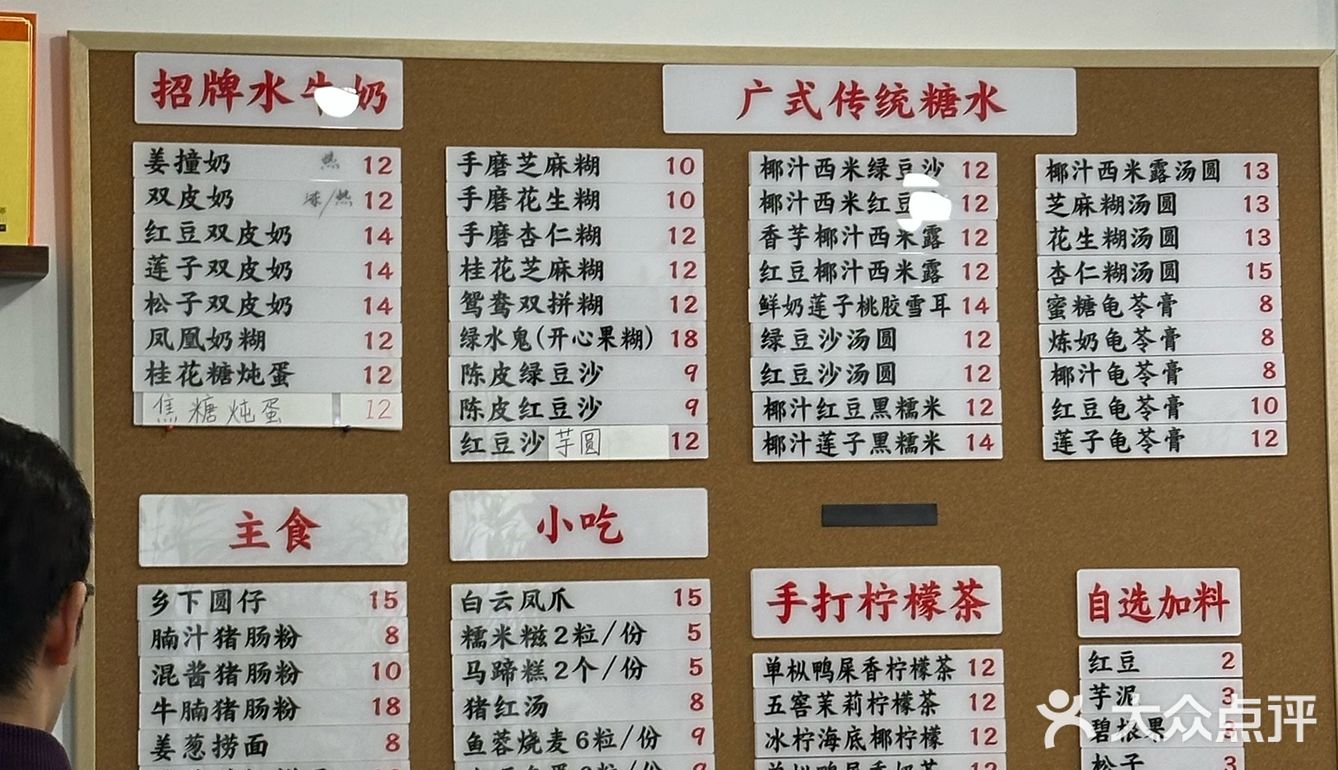 招牌水牛奶
姜撞奶 热 12
双皮奶 冻/热 12
红豆双皮奶 14
莲子双皮奶 14
松子双皮奶 14
凤凰奶糊 12
桂花糖炖蛋 12
焦糖炖蛋 12
广式传统糖水
手磨芝麻糊 10
手磨花生糊 10
手磨杏仁糊 12
桂花芝麻糊 12
鸳鸯双拼糊 12
绿水鬼(开心果糊) 18
陈皮绿豆沙 9
陈皮红豆沙 9
红豆沙芋圆 12
椰汁西米绿豆沙 12
椰汁西米红豆 12
香芋椰汁西米露 12
红豆椰汁西米露 12
鲜奶莲子桃胶雪耳 14
绿豆沙汤圆 12
红豆沙汤圆 12
椰汁红豆黑糯米 12
椰汁莲子黑糯米 14
椰汁西米露汤圆 13
芝麻糊汤圆 13
花生糊汤圆 13
杏仁糊汤圆 15
蜜糖龟苓膏 8
炼奶龟苓膏 8
椰汁龟苓膏 8
红豆龟苓膏 10
莲子龟苓膏 12
主食
乡下圆仔 15
腩汁猪肠粉 8
混酱猪肠粉 10
牛腩猪肠粉 18
姜葱捞面 8
小吃
白云凤爪 15
糯米糍2粒/份 5
马蹄糕2个/份 5
猪红汤 8
鱼蓉烧麦6粒/份 9
手打柠檬茶
单枞鸭屎香柠檬茶 12
五窨茉莉柠檬茶 12
冰柠海底椰柠檬 12
单枞鸭屎香奶茶 12
自选加料
红豆 2
芋泥 3
碧根果
松子 3
大众点评